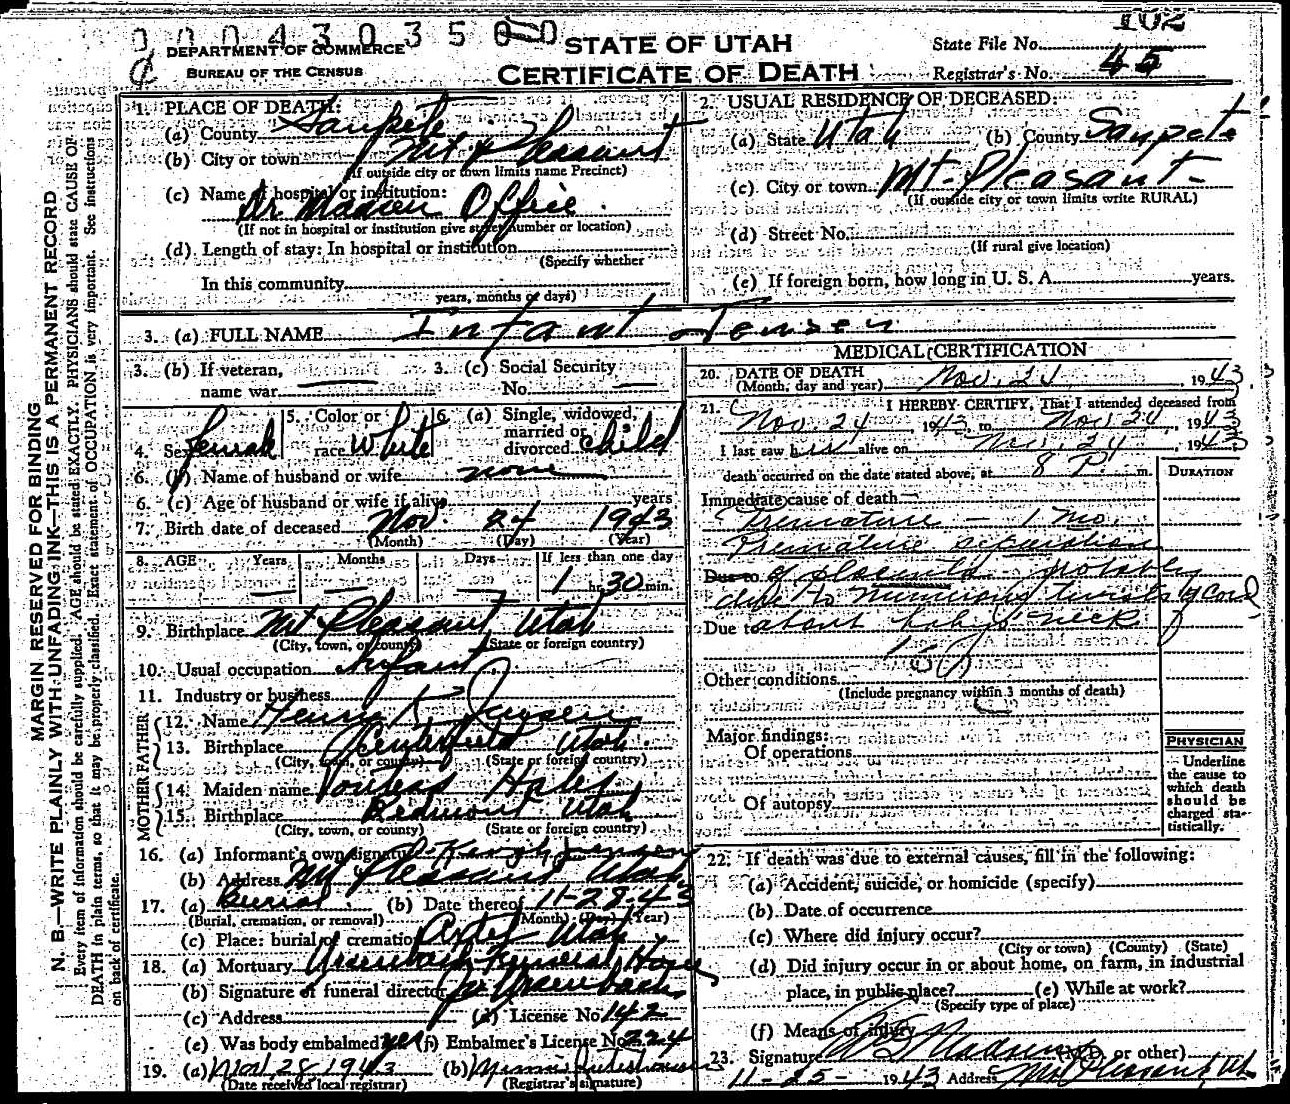 102
0 0 0 4 3 0 3 5 0 0
DEPARTMENT OF COMMERCE
BUREAU OF THE CENSUS
STATE OF UTAH
CERTIFICATE OF DEATH
State File No.
Registrar's No. 45
MARGIN RESERVED FOR BINDING
N. B.—WRITE PLAINLY WITH UNFADING INK—THIS IS A PERMANENT RECORD
Every item of information should be carefully supplied. AGE should be stated EXACTLY. PHYSICIANS should state CAUSE OF
DEATH in plain terms, so that it may be properly classified. Exact statement of OCCUPATION is very important. See instructions
on back of certificate.
1. PLACE OF DEATH:
(a) County Sanpete
(b) City or town Mt Pleasant
(If outside city or town limits name Precinct)
(c) Name of hospital or institution:
Dr Madsen Office.
(If not in hospital or institution give street number or location)
(d) Length of stay: In hospital or institution
(Specify whether
In this community
years, months or days)
2. USUAL RESIDENCE OF DECEASED:
(a) State Utah (b) County Sanpete
(c) City or town Mt. Pleasant
(If outside city or town limits write RURAL)
(d) Street No.
(If rural give location)
(e) If foreign born, how long in U. S. A. years.
3. (a) FULL NAME Infant Jensen
3. (b) If veteran,
name war
3. (c) Social Security
No.
4. Sex Female
5. Color or
race White
6. (a) Single, widowed,
married or
divorced child
6. (b) Name of husband or wife none
6. (c) Age of husband or wife if alive years
7. Birth date of deceased Nov. 24 1943
(Month) (Day) (Year)
8. AGE Years Months Days If less than one day
1 hr. 30 min.
9. Birthplace Mt Pleasant Utah
(City, town, or county) (State or foreign country)
10. Usual occupation Infant
11. Industry or business
FATHER
12. Name Henry K. Jensen
13. Birthplace Centerfield Utah.
(City, town, or county) (State or foreign country)
MOTHER
14. Maiden name Hales
15. Birthplace Redmond Utah
(City, town, or county) (State or foreign country)
16. (a) Informant's own signature Jensen
(b) Address Mt Pleasant Utah
17. (a) Burial (b) Date thereof 11-28-43
(Burial, cremation, or removal) (Month) (Day) (Year)
(c) Place: burial or cremation Utah
18. (a) Mortuary Ursenbach Funeral Home
(b) Signature of funeral director Ursenbach
(c) Address (d) License No. 142
(e) Was body embalmed yes (f) Embalmer's License No. 224
19. (a) Nov 28 1943 (b)
(Date received local registrar) (Registrar's signature)
MEDICAL CERTIFICATION
20. DATE OF DEATH
(Month, day and year) Nov. 24, 1943.
21. I HEREBY CERTIFY, That I attended deceased from
Nov. 24, 1943, to Nov 24, 1943
I last saw her alive on Nov. 24, 1943
death occurred on the date stated above, at 8 P. m.
DURATION
Immediate cause of death
Premature - 1 mo.
Premature separation
Due to of placenta - probably
due to numerous twists of cord
Due to about baby's neck
Other conditions
(Include pregnancy within 3 months of death)
Major findings:
Of operations
Of autopsy
PHYSICIAN
Underline
the cause to
which death
should be
charged sta-
tistically.
22. If death was due to external causes, fill in the following:
(a) Accident, suicide, or homicide (specify)
(b) Date of occurrence
(c) Where did injury occur?
(City or town) (County) (State)
(d) Did injury occur in or about home, on farm, in industrial
place, in public place? (e) While at work?
(Specify type of place)
(f) Means of injury
23. Signature Madsen (M.D. or other)
11-25-1943 Address Mt Pleasant, Ut